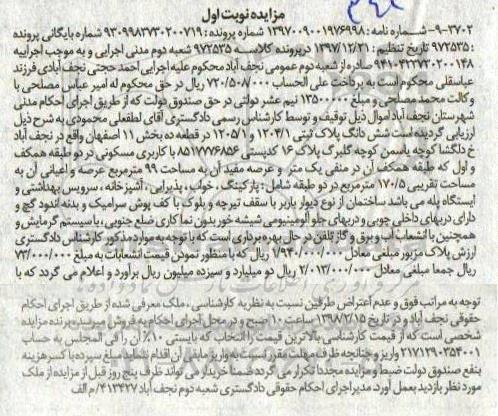 مزایده نوبت اول
۹-۳۷۰۲- شماره نامه: ۱۳۹۷۰۰۹۰۰۱۹۷۶۹۹۸ شماره پرونده: ۹۳۰۹۹۸۳۷۳۰۲۰۰۷۱۹ شماره بایگانی پرونده
:۹۷۲۵۳۵ تاریخ تنظیم: ۱۳۹۷/۱۲/۲۱ درپرونده کلاسه ۹۷۲۵۳۵ شعبه دوم مدنی اجرایی و به موجب اجراییه
۹۴۱۰۴۲۳۷۳۰۲۰۰۱۴۸ صادر از شعبه دوم عمومی نجف آباد محکوم علیه اجرایی احمد حجتی نجف آبادی فرزند
عباسقلی محکوم است به پرداخت علی الحساب ۷۲۰/۵۰۷/۰۰۰ ریال در حق محکوم له امیر عباس مصلحی با
وکالت محمد مصلحی و مبلغ ۱۳۵۰۰۰۰۰ نیم عشر دولتی در حق صندوق دولت که از طریق اجرای احکام مدنی
شهرستان نجف آباد اموال ذیل توقیف و توسط کارشناس رسمی دادگستری آقای لطفعلی محمودی به شرح ذیل
ارزیابی گردیده است شش دانگ پلاک ثبتی ۱۲۰۴/۱ و ۱۲۰۵/۱ در قطعه ده بخش ۱۱ اصفهان واقع در نجف آباد
خ دلگشا کوچه یاسمن کوچه گلبرگ پلاک ۱۶ کدپستی ۸۵۱۷۷۷۶۸۵۶ با کاربری مسکونی در دو طبقه همکف
و اول که طبقه همکف آن در منفی یک متر و عرصه مفید آن به مساحت ۹۹ مترمربع عرصه و اعیانی آن به
مساحت تقریبی ۱۷۰/۵ مترمربع در دو طبقه شامل: پارکینگ، خواب، پذیرایی، آشپزخانه، سرویس بهداشتی و
ایستگاه پله می باشد ساختمان از نوع دیوار باربر با سقف تیرچه و بلوک با کف پوش سرامیک و بدنه اندود گچ و
دارای دربهای داخلی چوبی و دربهای جلو آلومینیومی شیشه خور بدون نما کاری ضلع جنوبی، با سیستم گرمایش و
همچنین با انشعاب آب و برق و گاز تلفن در حال بهره برداری است که با توجه به موارد مذکور کارشناس دادگستری
ارزش پلاک مزبور مبلغی معادل ۱/۹۴۰/۰۰۰/۰۰۰ ریال که با منظور نمودن قیمت انشعابات به مبلغ ۷۳/۰۰۰/۰۰۰
ریال جمعا مبلغی معادل ۲/۰۱۳/۰۰۰/۰۰۰ ریال دو میلیارد و سیزده میلیون ریال برآورد و اعلام می گردد که با
توجه به مراتب فوق و عدم اعتراض طرفین نسبت به نظریه کارشناسی، ملک معرفی شده از طریق اجرای احکام
حقوقی نجف آباد و در تاریخ ۱۳۹۸/۲/۱۵ ساعت ۱۰ صبح و در محل اجرای احکام به فروش میرسد، برنده مزایده
شخصی است که از قیمت کارشناسی بالاترین قیمت را انتخاب که بایستی ۱۰٪ آن را فی المجلس به حساب
۲۱۷۱۲۹۰۳۵۴۰۰۱ واریز و چنانچه ظرف مهلت مقرر نسبت به واریز مابقی آن اقدام ننماید مبلغ سپرده با کسر هزینه
بنفع صندوق دولت ضبط و مزایده مجددا تکرار می گردد ضمنا خریدار می تواند ظرف پنج روز قبل از مزایده از ملک
مورد نظر بازدید بعمل آورد. مدیر اجرای احکام حقوقی دادگستری شعبه دوم نجف آباد ۴۱۳۴۲۷/م الف